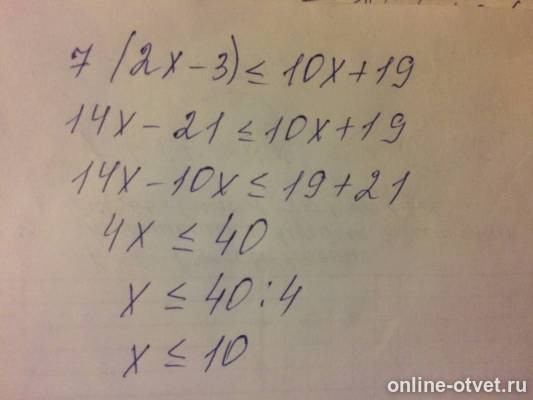 7 (2x-3) ≤ 10x+19
14x - 21 ≤ 10x+19
14x-10x ≤ 19+21
4x ≤ 40
x ≤ 40:4
x ≤ 10
online-otvet.ru